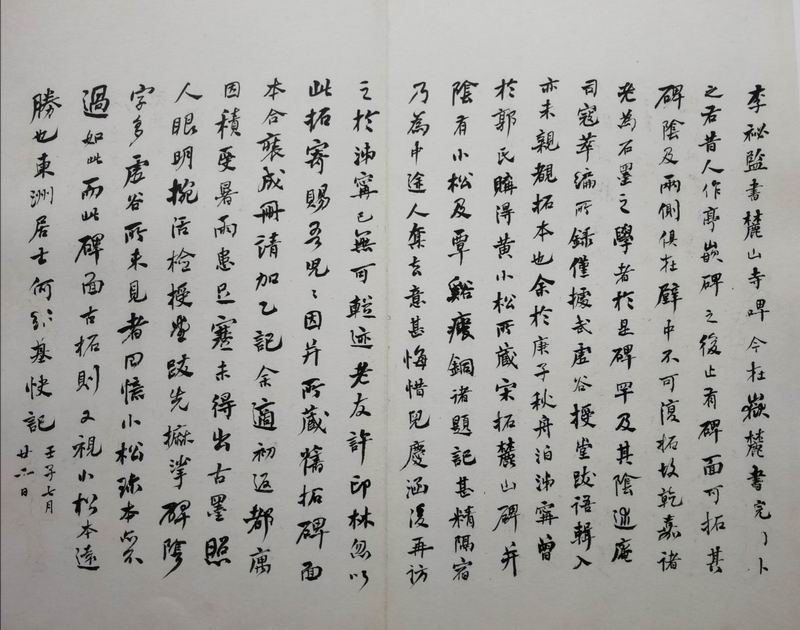 李祕監書麓山寺碑今在嶽麓書院門外
之右昔人作亭嵌碑之後止有碑面可拓其
碑陰及兩側俱在壁中不可復拓故乾嘉諸
老為石墨之學者於是碑罕及其陰述庵
司寇萃編所錄僅據武虛谷授堂跋語輯入
亦未親覩拓本也余於庚子秋舟泊沛甯曾
於郭氏購得黃小松所藏宋拓麓山碑并
陰有小松及覃谿瘦銅諸題記甚精隔宿
乃為中途人奪去意甚悔惜兒慶涵後再訪
之於沛甯已無可蹤迹老友許印林忽以
此拓寄賜吾兒〻因并所藏舊拓碑面
本合裝成冊請加乙記余適初返都寓
因積受暑雨患足蹇未得出古墨照
人眼明捥活檢授堂跋先摩挲碑陰
字多虛谷所未見者回憶小松珍本當不
過如此而此碑面古拓則又視小松本遠
勝也東洲居士何紹基快記
壬子七月
廿六日